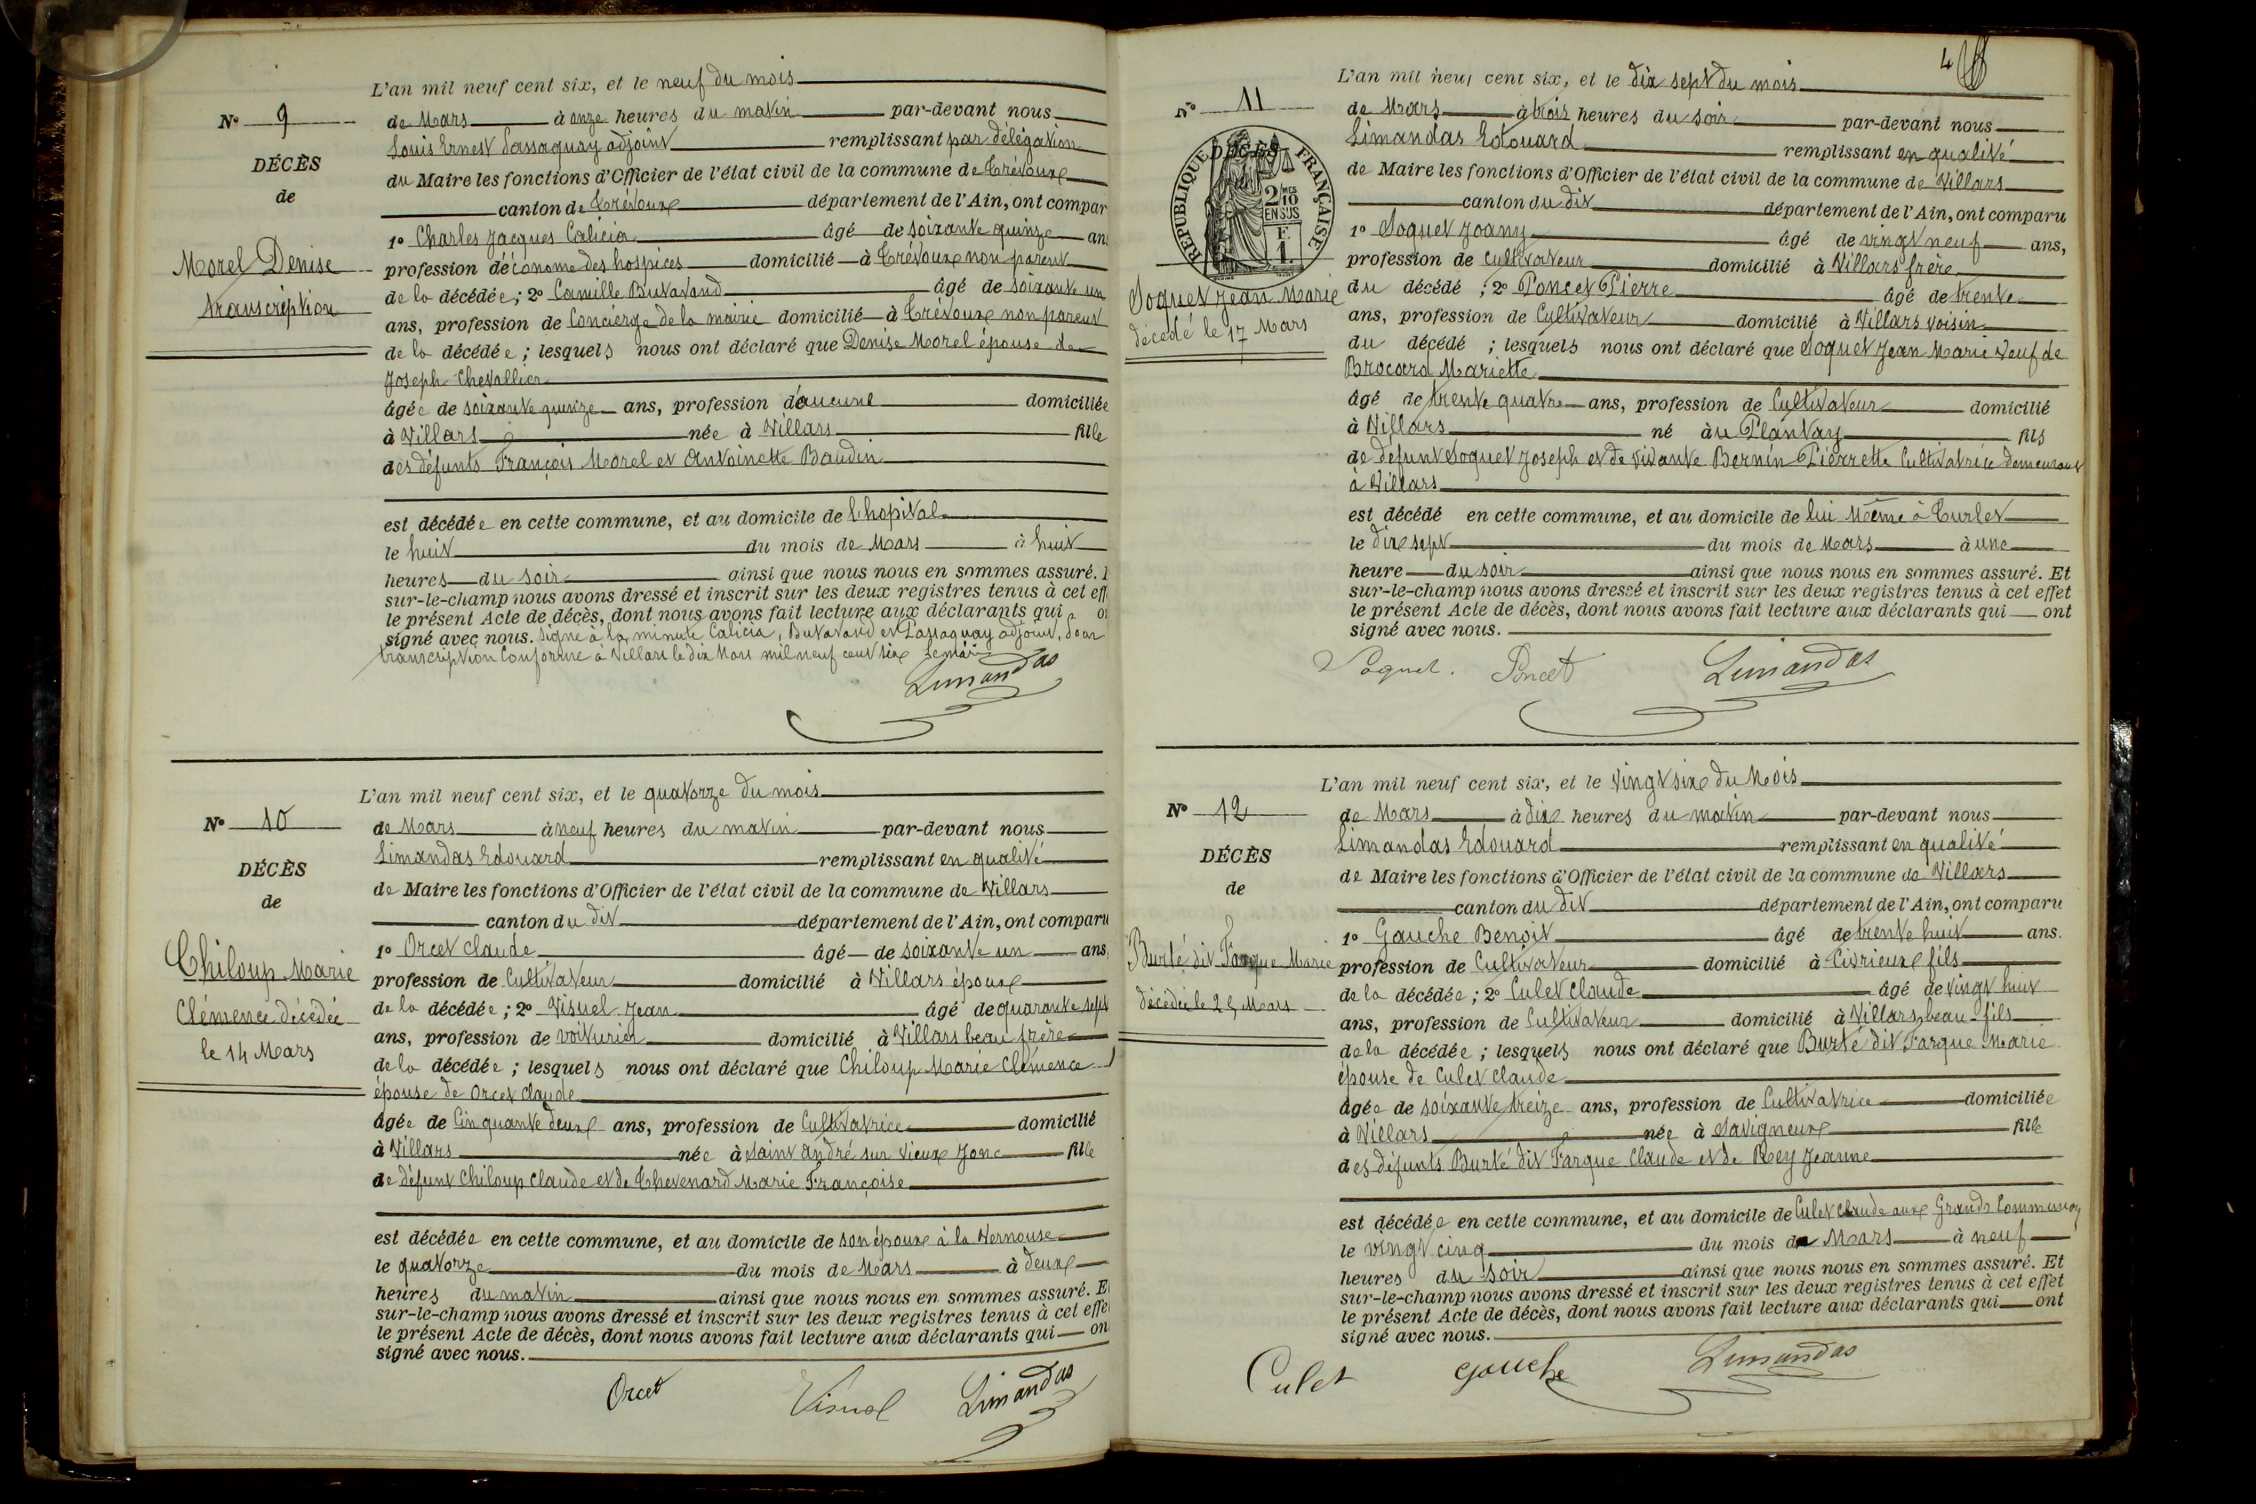 L'an mil neuf cent six, et le neuf du mois
N° 9
de Mars à onze heures du matin par-devant nous
Louis Ernest Passaquay adjoint remplissant par délégation
DÉCÈS
du Maire les fonctions d'Officier de l'état civil de la commune de Trévoux
de
canton de Trévoux département de l'Ain, ont compar
1° Charles Jacques Calicia âgé de soixante quinze ans
Morel Denise
profession d'économe des hospices domicilié à Trévoux non parent
transcription
de la décédée ; 2° Camille Butavand âgé de soixante un
ans, profession de Concierge de la mairie domicilié à Trévoux non parent
de la décédée ; lesquels nous ont déclaré que Denise Morel épouse de
Joseph Chevallier
âgée de soixante quinze ans, profession d'aucune domiciliée
à Villars née à Villars fille
des défunts François Morel et Antoinette Baudin
est décédée en cette commune, et au domicile de l'hopital
le huit du mois de Mars à huit
heures du soir ainsi que nous nous en sommes assuré.
sur-le-champ nous avons dressé et inscrit sur les deux registres tenus à cet eff
le présent Acte de décès, dont nous avons fait lecture aux déclarants qui
signé avec nous. Signé à la minute Calicia, Butavand et Passaquay adjoint, pour
transcription Conforme à Villars le dix Mars mil neuf cent six Le Maire
Limandas
L'an mil neuf cent six, et le quatorze du mois
N° 10
de Mars à neuf heures du matin par-devant nous
Limandas Edouard remplissant en qualité
DÉCÈS
de Maire les fonctions d'Officier de l'état civil de la commune de Villars
de
canton du dit département de l'Ain, ont comparu
1° Orcet Claude âgé de soixante un ans,
Chiloup Marie
profession de Cultivateur domicilié à Villars époux
Clémence décédée
de la décédée ; 2° Visuel Jean âgé de quarante sept
ans, profession de voiturier domicilié à Villars beau frère
le 14 Mars
de la décédée ; lesquels nous ont déclaré que Chiloup Marie Clémence
épouse de Orcet Claude
âgée de Cinquante deux ans, profession de Cultivatrice domicilié
à Villars née à Saint André sur Vieux Jonc fille
de défunt Chiloup Claude et de Thevenard Marie Françoise
est décédée en cette commune, et au domicile de son époux à la Vernouse
le quatorze du mois de Mars à deux
heures du matin ainsi que nous nous en sommes assuré. E
sur-le-champ nous avons dressé et inscrit sur les deux registres tenus à cet effe
le présent Acte de décès, dont nous avons fait lecture aux déclarants qui on
signé avec nous.
Orcet Visuel Limandas
4
L'an mil neuf cent six, et le dix sept du mois
N° 11
de Mars à trois heures du soir par-devant nous
Limandas Edouard remplissant en qualité
DÉCÈS
RÉPUBLIQUE FRANÇAISE
2/10 EN SUS
F. 1.
de Maire les fonctions d'Officier de l'état civil de la commune de Villars
canton du dit département de l'Ain, ont comparu
1° Soquet Joany âgé de vingt neuf ans,
profession de cultivateur domicilié à Villars frère
Soquet Jean Marie
du décédé ; 2° Poncet Pierre âgé de trente
décédé le 17 Mars
ans, profession de Cultivateur domicilié à Villars voisin
du décédé ; lesquels nous ont déclaré que Soquet Jean Marie Veuf de
Brocard Mariette
âgé de trente quatre ans, profession de Cultivateur domicilié
à Villars né au Plantay fils
de défunt Soquet Joseph et de vivante Bernin Pierrette Cultivatrice demeurant
à Villars
est décédé en cette commune, et au domicile de lui Même à Curlet
le dix sept du mois de Mars à une
heure du soir ainsi que nous nous en sommes assuré. Et
sur-le-champ nous avons dressé et inscrit sur les deux registres tenus à cet effet
le présent Acte de décès, dont nous avons fait lecture aux déclarants qui ont
signé avec nous.
Soquet. Poncet Limandas
L'an mil neuf cent six, et le vingt six du Mois
N° 12
de Mars à dix heures du matin par-devant nous
Limandas Edouard remplissant en qualité
DÉCÈS
de Maire les fonctions d'Officier de l'état civil de la commune de Villars
de
canton du dit département de l'Ain, ont comparu
1° Gauche Benoit âgé de trente huit ans.
Burté dit Farque Marie
profession de Cultivateur domicilié à Civrieux fils
décédée le 25 Mars
de la décédée ; 2° Culet Claude âgé de vingt huit
ans, profession de Cultivateur domicilié à Villars, beau-fils
de la décédée ; lesquels nous ont déclaré que Burté dit Farque Marie
épouse de Culet Claude
âgée de soixante treize ans, profession de Cultivatrice domiciliée
à Villars née à Savigneux fille
des défunts Burté dit Farque Claude et de Rey Jeanne
est décédée en cette commune, et au domicile de Culet Claude aux Grands Communaux
le vingt cinq du mois de Mars à neuf
heures du soir ainsi que nous nous en sommes assuré. Et
sur-le-champ nous avons dressé et inscrit sur les deux registres tenus à cet effet
le présent Acte de décès, dont nous avons fait lecture aux déclarants qui ont
signé avec nous.
Culet Gauche Limandas